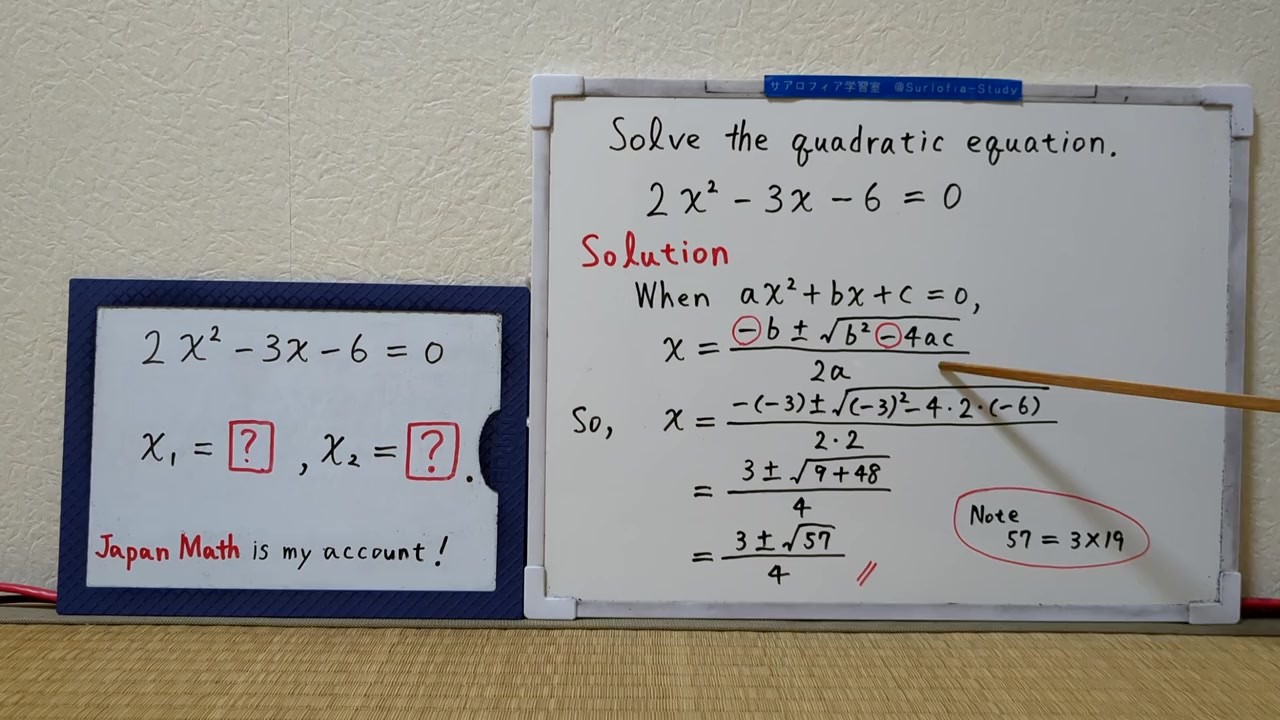 2x² - 3x - 6 = 0
x₁ = ? , x₂ = ? .
Japan Math is my account!
サアロフィア学習室 @Surlofia-Study
Solve the quadratic equation.
2x² - 3x - 6 = 0
Solution
When ax² + bx + c = 0,
x = (-b ± √(b² - 4ac)) / 2a
So, x = (-(-3) ± √((-3)² - 4・2・(-6))) / 2・2
= (3 ± √(9+48)) / 4
= (3 ± √57) / 4 //
Note
57 = 3×19